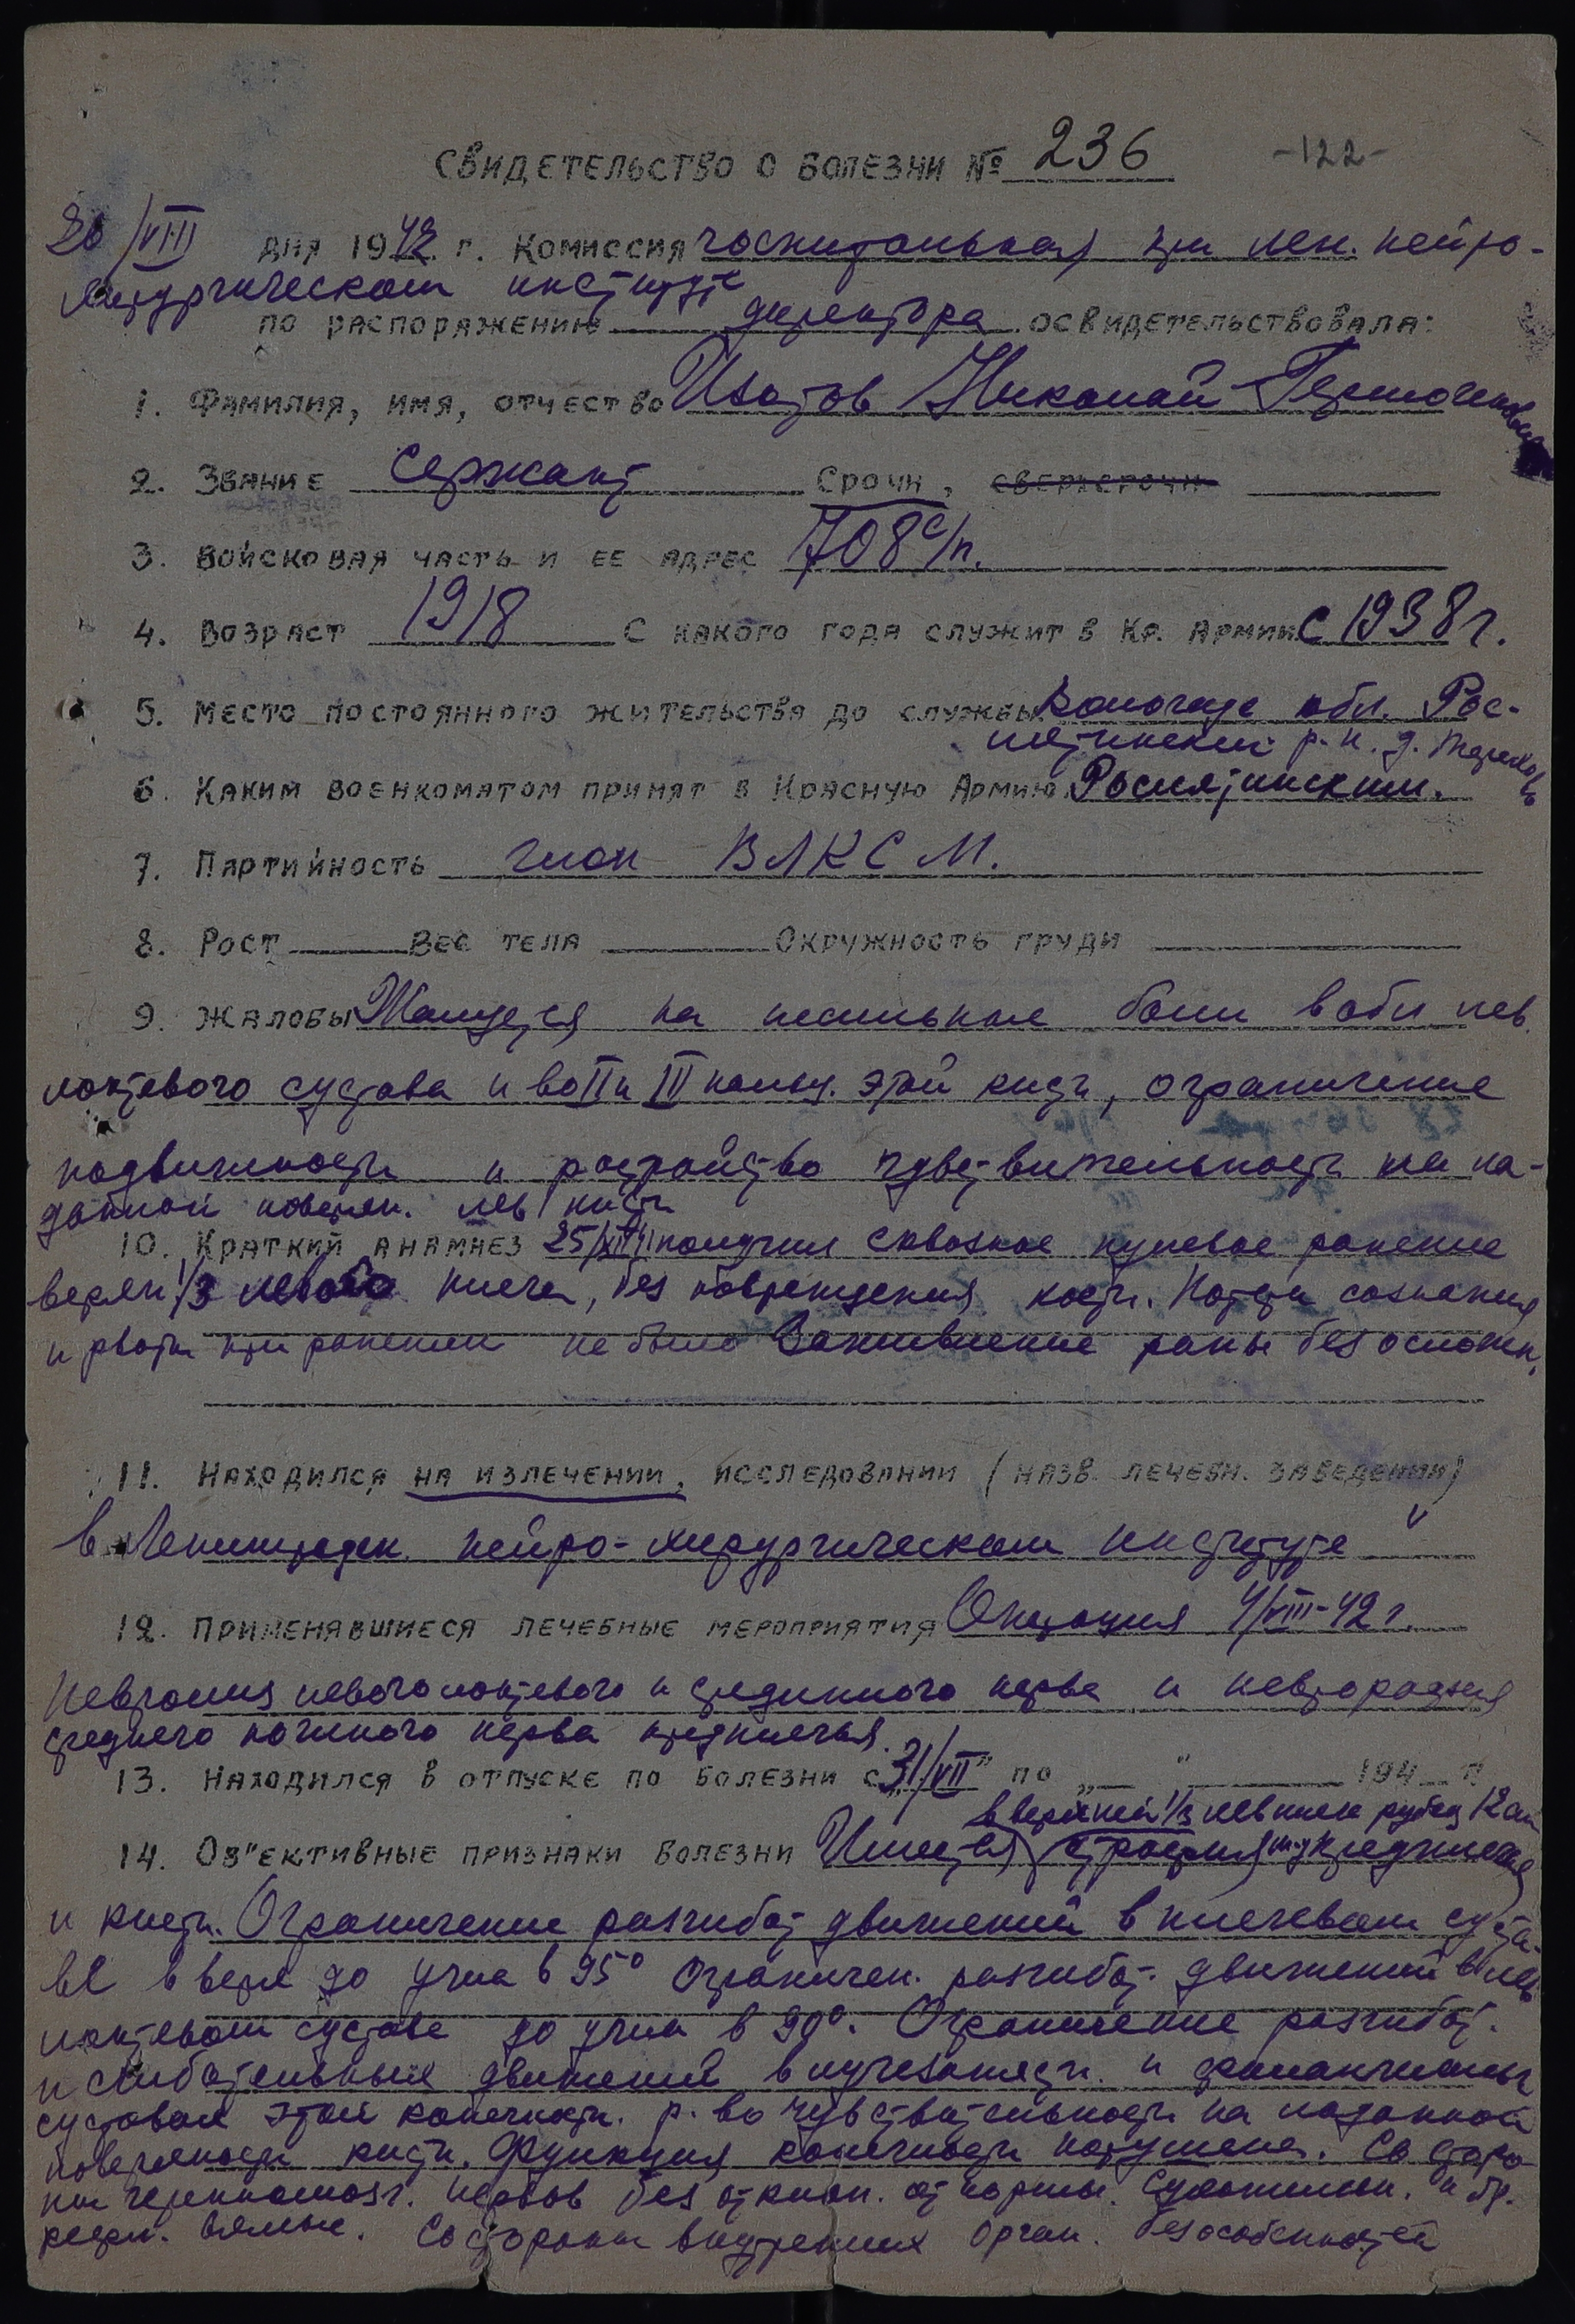 Свидетельство о болезни № 236 -122-
20/VIII дня 1942 г. Комиссия госпитальная при Лен. нейро-
хирургическом институте
по распоряжению директора освидетельствовала:
1. Фамилия, имя, отчество Изотов Николай
2. Звание Сержант Срочн, сверхсрочн
3. Войсковая часть и ее адрес 708 с/п.
4. Возраст 1918 С какого года служит в Кр. Армии с 1938 г.
5. Место постоянного жительства до службы Вологодс обл. Рос-
лятинский р-н. д.
6. Каким военкоматом принят в Красную Армию Рослятинским.
7. Партийность член ВЛКСМ.
8. Рост Вес тела Окружность груди
9. Жалобы Жалуется на несильные боли в обл лев.
локтевого сустава и во II и III пальц. этой кисти, ограничение
подвижности и растройство чувствительности на ла-
донной поверхн. лев кисти
10. Краткий анамнез 25/XII 41 получил сквозное пулевое ранение
верхн 1/3 левого плеча, без повреждения кости. Потери сознания
и рвоты при ранении не было Заживление раны без осложн.
11. Находился на излечении, исследовании (назв. лечебн. заведении)
в Ленинградск. нейро-хирургическом институте
12. Применявшиеся лечебные мероприятия Операция 4/VIII-42 г.
Невролиз левого локтевого и срединного нерва и неврорафия
среднего кожного нерва предплечья.
13. Находился в отпуске по болезни с „31/VII" по „ " 194 г
в верхней 1/3 лев плеча рубец 12 см
14. Об"ективные признаки болезни Имеется атрофия м-ц предплечья
и кисти. Ограничение разгибат движений в плечевом суста-
ве вверх до угла в 95° Ограничен. разгибат. движений в лев
локтевом суставе до угла в 90°. Ограничение разгибат.
и сгибательных движений в лучезапястн. и фаланговых
суставах этой конечности. р-во чувствительности на ладонной
поверхности кисти. Функция конечности нарушена. Со сторо-
ны черепномозг. нервов без отклон. от нормы. Сухожильн. и бр.
рефл. вялые. Со стороны внутренних орган. без особенностей